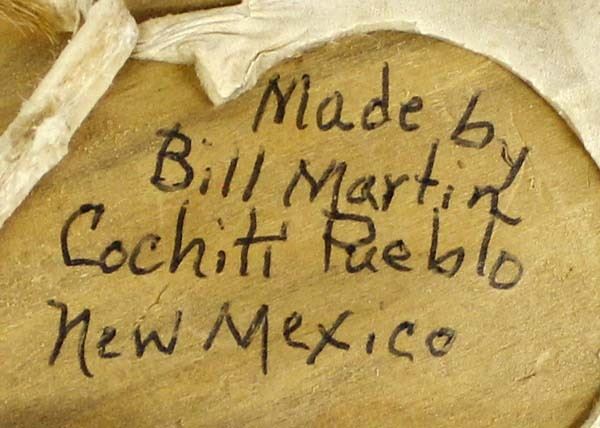 Made by
Bill Martin
Cochiti Pueblo
New Mexico